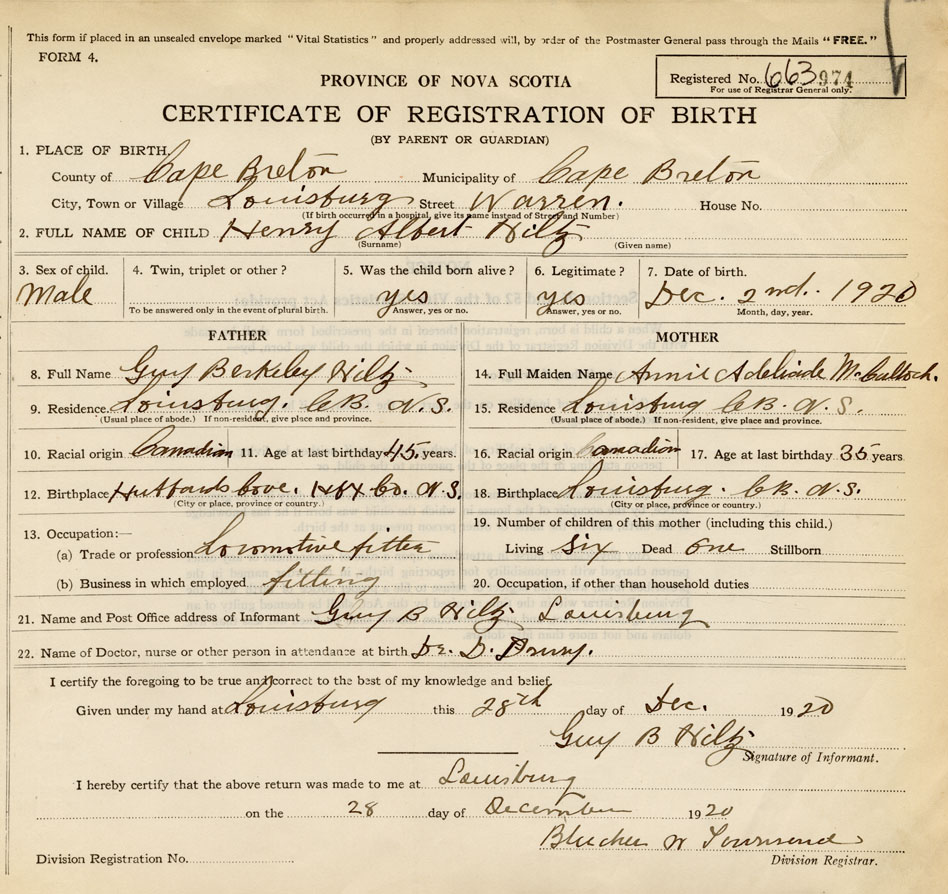 This form if placed in an unsealed envelope marked "Vital Statistics" and properly addressed will, by order of the Postmaster General pass through the Mails "FREE."
FORM 4.
Registered No. 663 974
For use of Registrar General only.
PROVINCE OF NOVA SCOTIA
CERTIFICATE OF REGISTRATION OF BIRTH
(BY PARENT OR GUARDIAN)
1. PLACE OF BIRTH
County of Cape Breton Municipality of Cape Breton
City, Town or Village Louisburg Street Warren. House No.
(If birth occurred in a hospital, give its name instead of Street and Number)
2. FULL NAME OF CHILD Henry Albert Hiltz
(Surname) (Given name)
3. Sex of child. 4. Twin, triplet or other? 5. Was the child born alive? 6. Legitimate? 7. Date of birth.
Male yes yes Dec. 2nd. 1920
To be answered only in the event of plural birth. Answer, yes or no. Answer, yes or no. Month, day, year.
FATHER MOTHER
8. Full Name Guy Berkeley Hiltz 14. Full Maiden Name Annie Adeliade McCulloch.
9. Residence. Louisburg. C.B. N.S. 15. Residence Louisburg C.B. N.S.
(Usual place of abode.) If non-resident, give place and province. (Usual place of abode.) If non-resident, give place and province.
10. Racial origin Canadian 11. Age at last birthday 45. years. 16. Racial origin Canadian 17. Age at last birthday 35 years.
12. Birthplace Hubbards Cove. Hfx Co. N.S. 18. Birthplace Louisburg. C.B. N.S.
(City or place, province or country.) (City or place, province or country.)
13. Occupation:— 19. Number of children of this mother (including this child.)
(a) Trade or profession Locomotive fitter Living Six Dead One Stillborn
(b) Business in which employed fitting 20. Occupation, if other than household duties
21. Name and Post Office address of Informant Guy B Hiltz Louisburg
22. Name of Doctor, nurse or other person in attendance at birth Dr. D.
I certify the foregoing to be true and correct to the best of my knowledge and belief.
Given under my hand at Louisburg this 28th day of Dec. 1920
Guy B Hiltz
Signature of Informant.
I hereby certify that the above return was made to me at Louisburg
on the 28 day of December 1920
Blucher W Townsend
Division Registration No. Division Registrar.